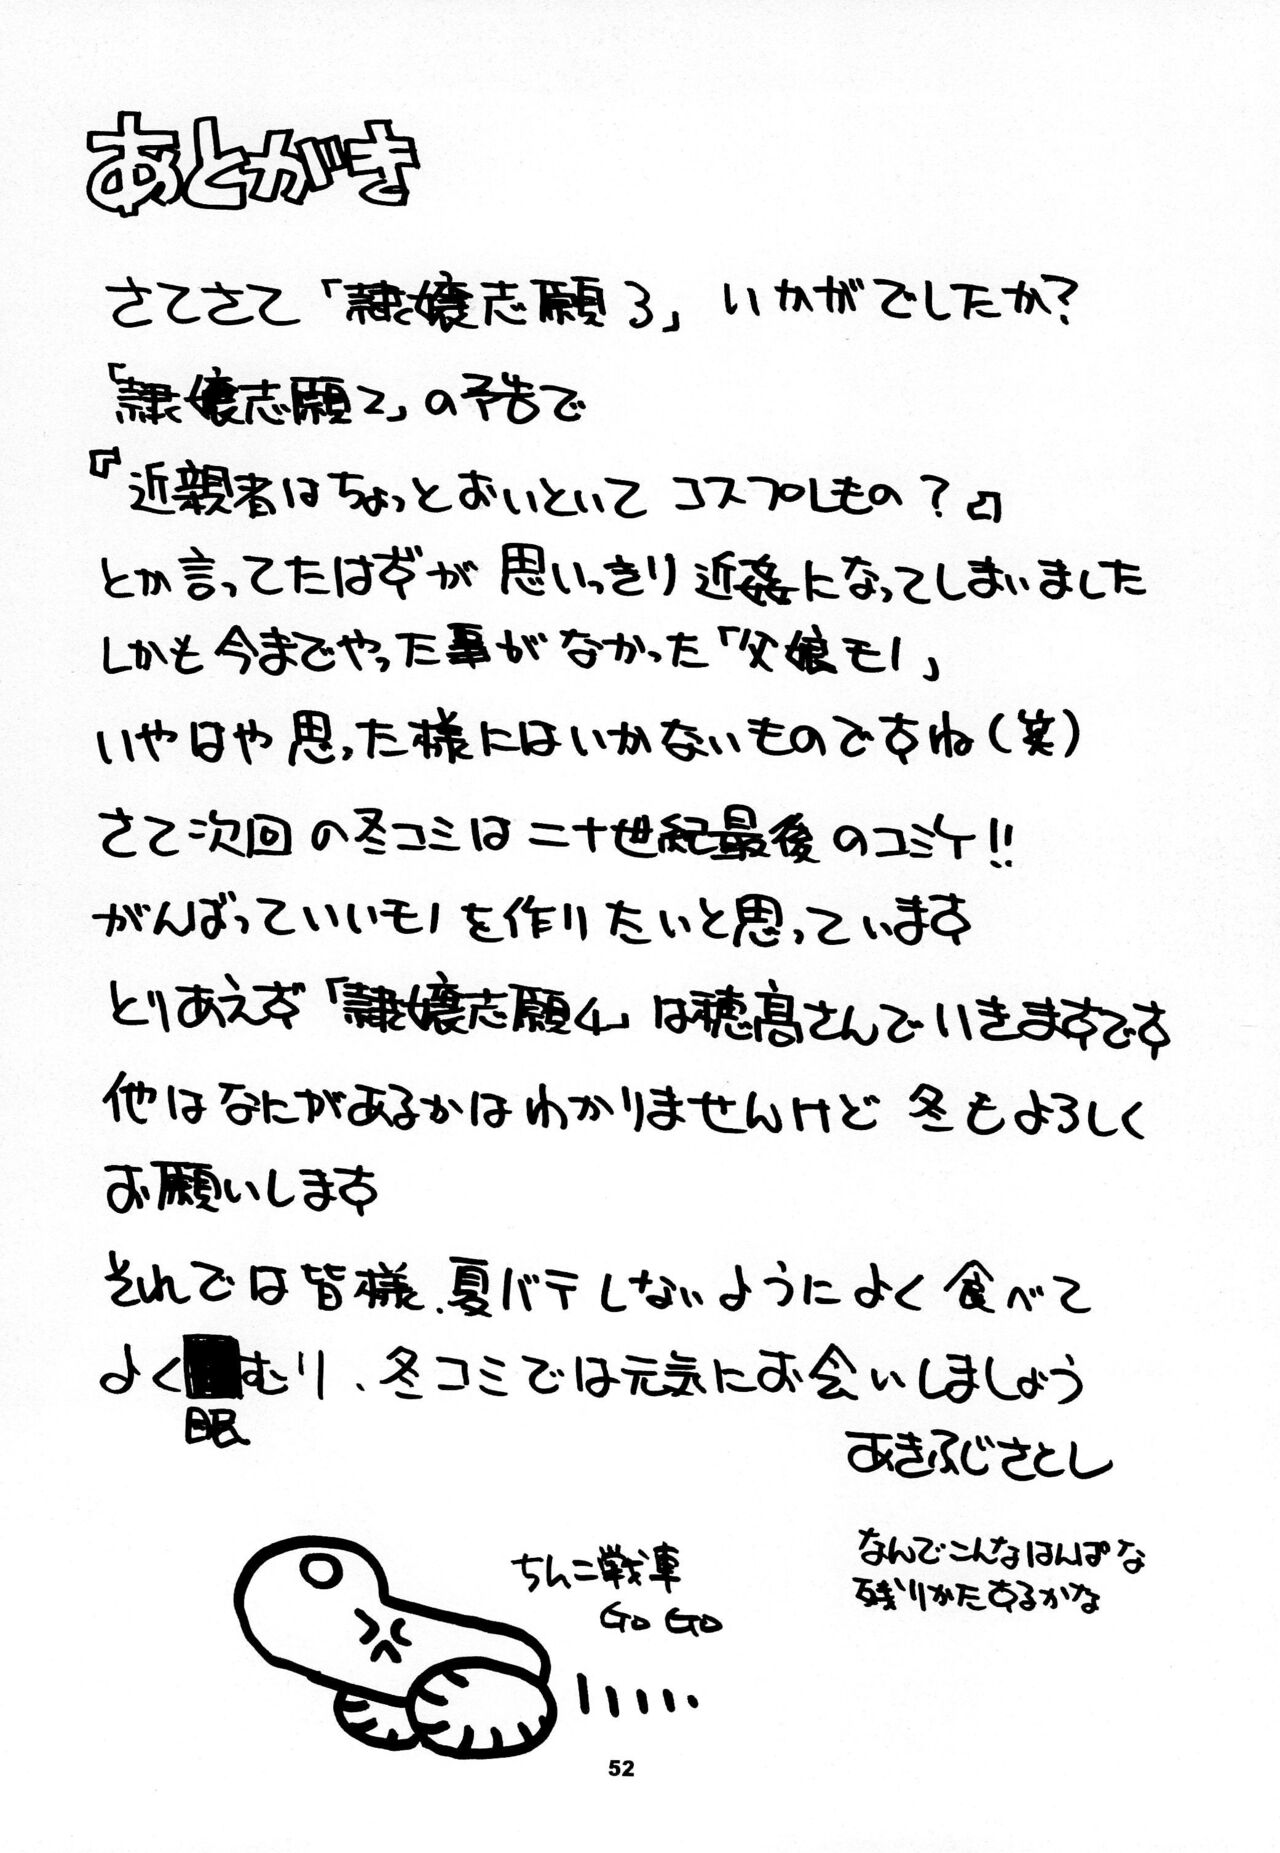 あとがき
さてさて「隷嬢志願3」いかがでしたか?
「隷嬢志願2」の予告で
『近親者はちょっとおいといて コスプレもの?』
とか言ってたはずが 思いっきり近姦になってしまいました
しかも今までやった事がなかった「父娘モノ」
いやはや思った様にはいかないものですね(笑)
さて次回の冬コミは二十世紀最後のコミケ!!
がんばっていいモノを作りたいと思っています
とりあえず「隷嬢志願4」は穂高さんでいきますです
他はなにがあるかはわかりませんけど 冬もよろしく
お願いします
それでは皆様、夏バテしないようによく食べて
よくむり、冬コミでは元気にお会いしましょう
眠
あきふじさとし
なんでこんなはんぱな
残りかたするかな
ちんこ戦車
GO GO
52